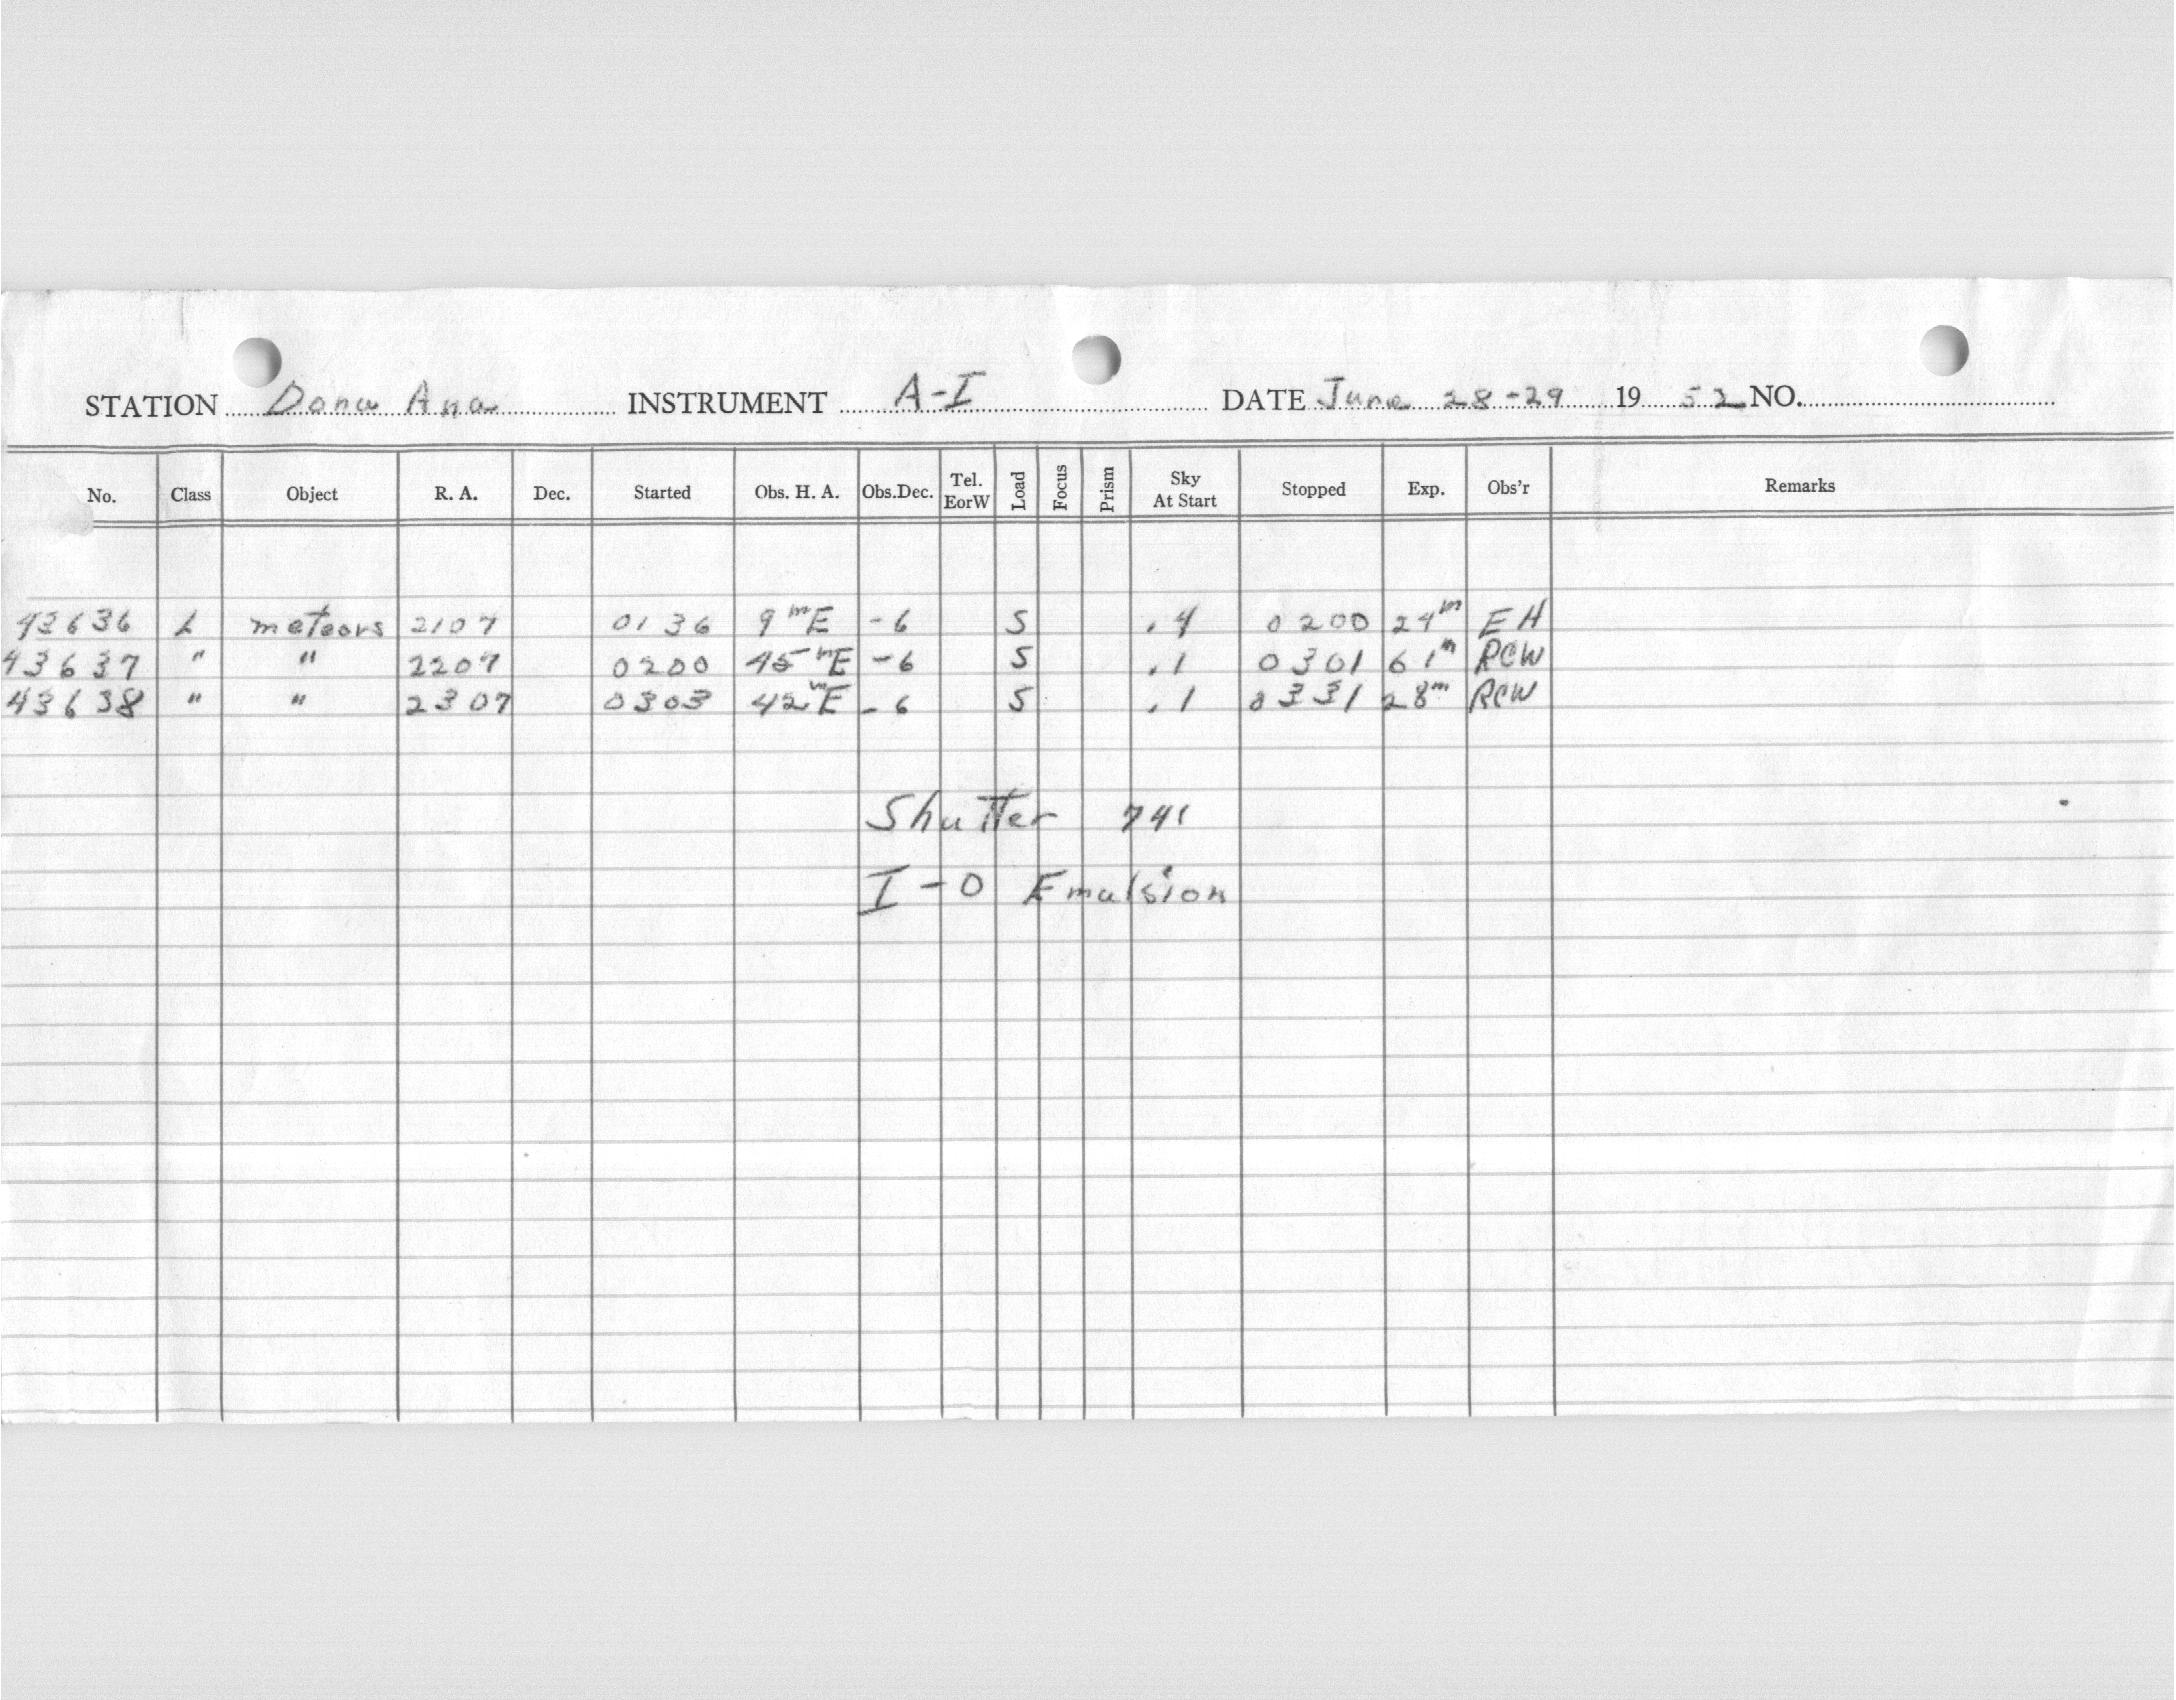 STATION Dona Ana INSTRUMENT A-I DATE June 28-29 1952 NO.
No. Class Object R. A. Dec. Started Obs. H. A. Obs.Dec. Tel. EorW Load Focus Prism Sky At Start Stopped Exp. Obs'r Remarks
43636 L meteors 2107 0136 9mE -6 S .4 0200 24m EH
43637 " " 2207 0200 45mE -6 S .1 0301 61m RCW
43638 " " 2307 0303 42mE -6 S .1 0331 28m RCW
Shutter 741
I-O Emulsion